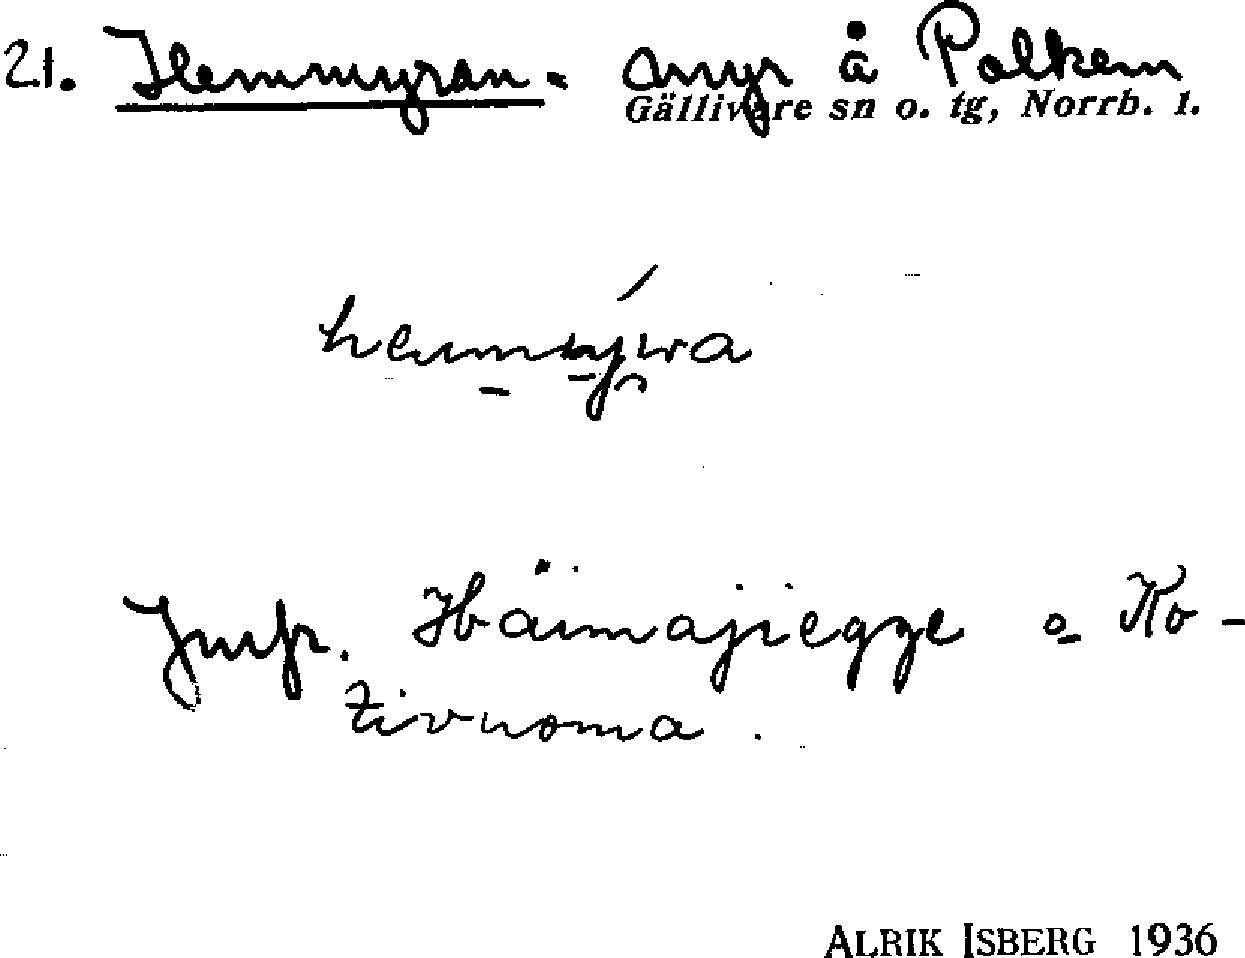 21. Hemmyran. myr å Polkem
Gällivare sn o. tg, Norrb. l.
Jmfr. Häimajiegge o Ko-
tivuoma.
ALRIK ISBERG 1936